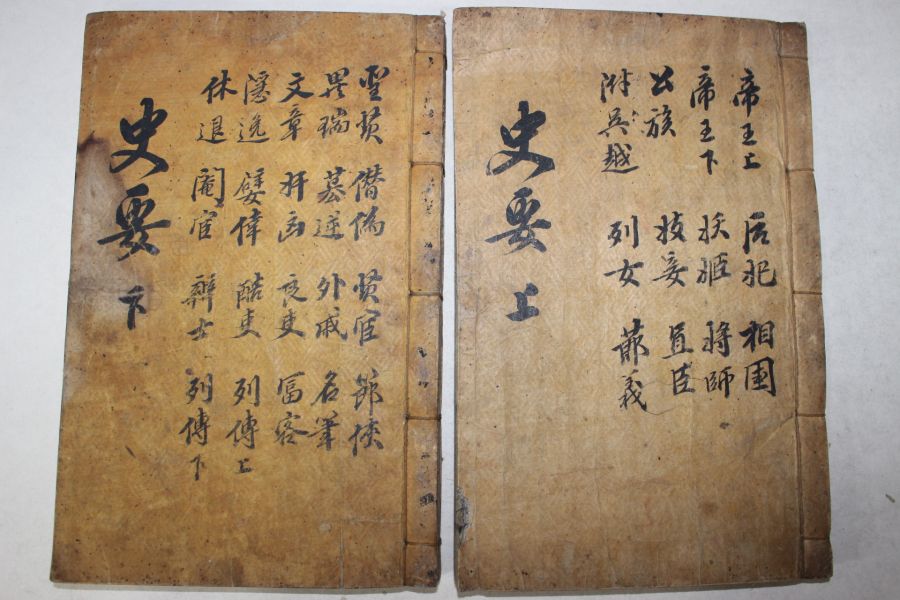 帝王上 后妃 相國
帝王下 妖姬 將師
公族 妾 直臣
附吳越 列女 節義
史要 上
聖賢 僭僞 賢宦 節俠
異瑞 逆 外戚 名筆
文章 奸凶 良吏 富客
隱逸 嬖倖 酷吏 列傳上
休退 閹宦 辯士 列傳下
史要 下